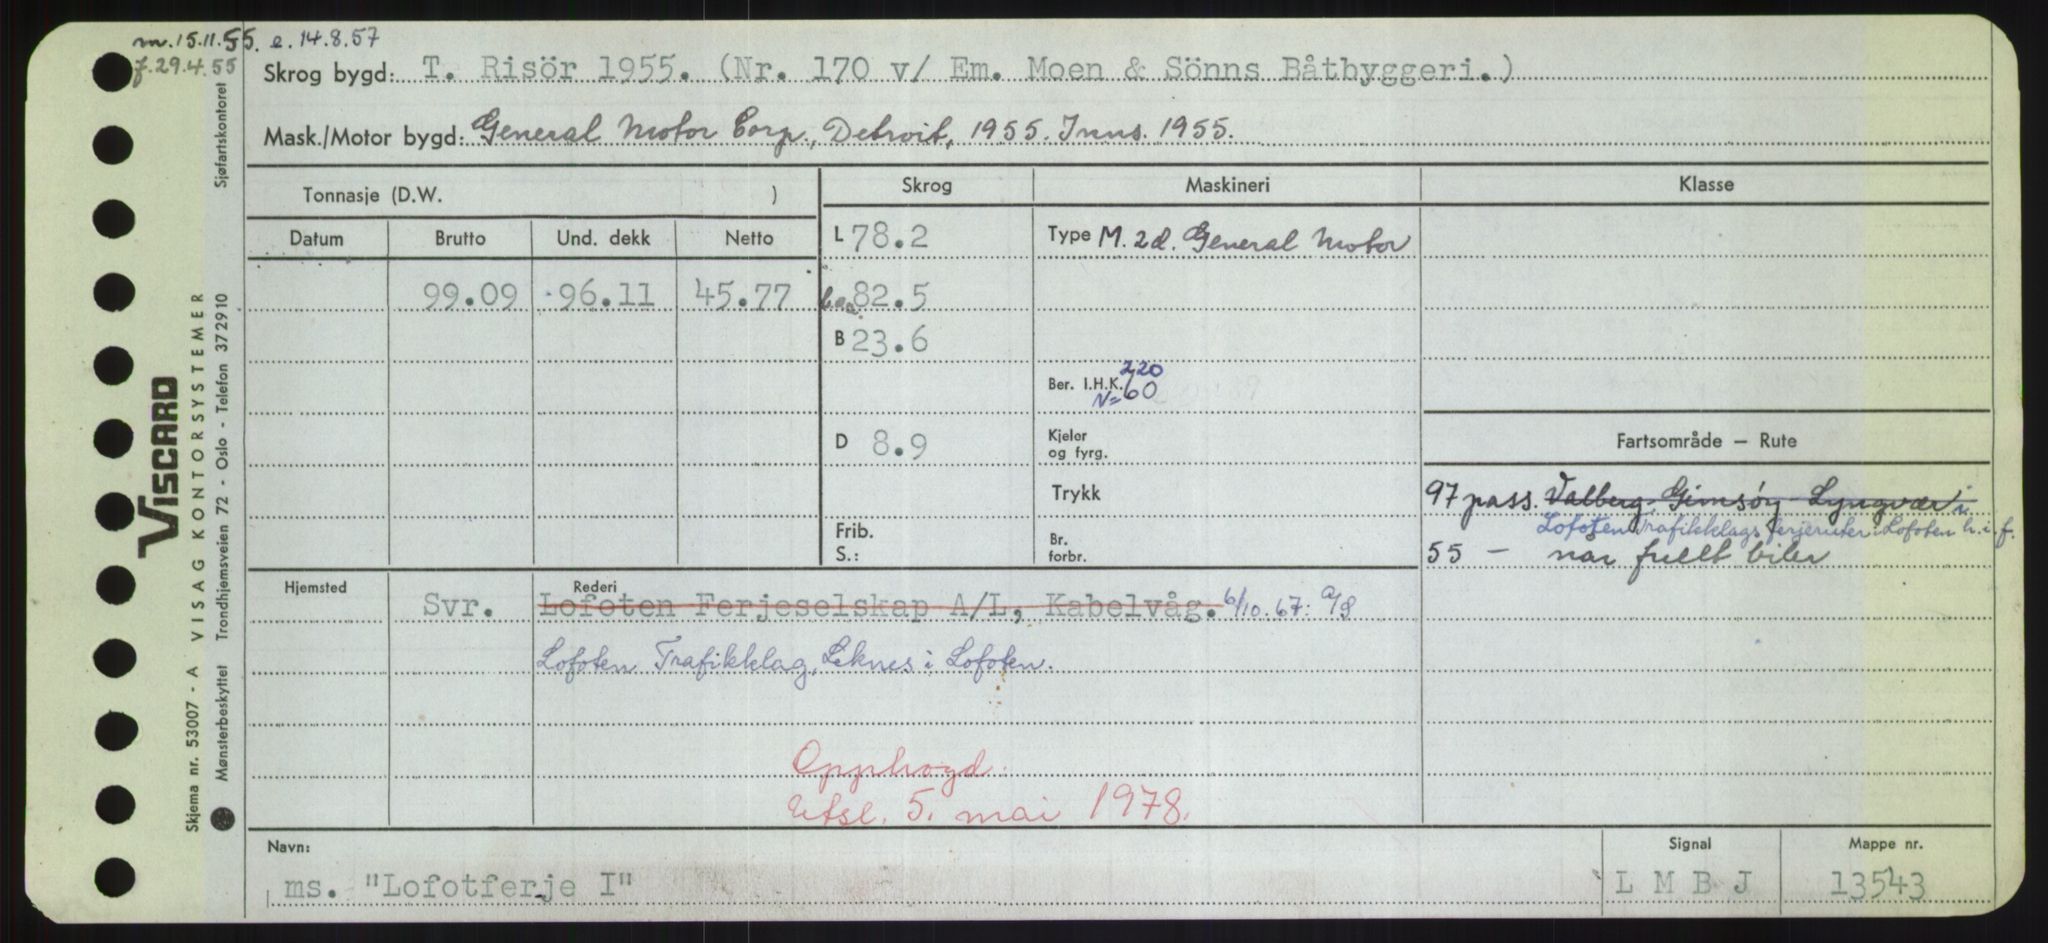 m. 15.11.55. e. 14.8.57
f. 29.4.55
Skrog bygd: T. Risör 1955. (Nr. 170 v/ Em. Moen & Sönns Båtbyggeri.)
Mask./Motor bygd: General Motor Corp., Detroit, 1955. Inns. 1955.
Tonnasje (D.W. )
Skrog
Maskineri
Klasse
Datum Brutto Und. dekk Netto
L 78.2
Type M. 2d. General Motor
99.09 96.11 45.77
82.5
B 23.6
220
Ber. I.H.K. 60
N=
D 8.9
Kjeler
og fyrg.
Fartsområde – Rute
Trykk
97 pass. Valberg, Gimsøy - Lyngvær i
Lofoten Trafikklags ferjeruter i Lofoten h. i. f.
Frib.
S.:
Br.
forbr.
55 – når fullt biler
Hjemsted
Rederi
Svr. Lofoten Ferjeselskap A/L, Kabelvåg. 6/10.67: A/S
Lofoten Trafikklag, Leknes i Lofoten.
Opphogd.
Utsl. 5. mai 1978.
Navn:
ms. "Lofotferje I"
Signal
L M B J
Mappe nr.
13543
VISCARD
VISAG KONTORSYSTEMER
Skjema nr. 53007 - A
Mønsterbeskyttet Trondhjemsveien 72 - Oslo - Telefon 372910
Sjøfartskontoret